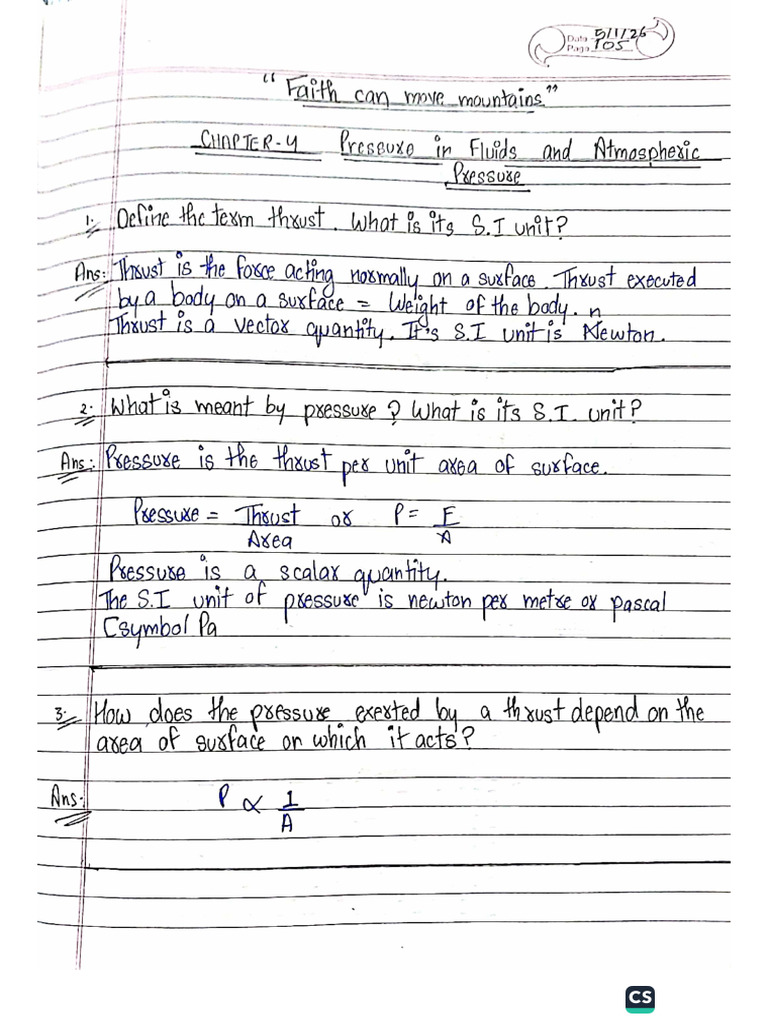 Date 5/1/26
Page 105
"Faith can move mountains"
CHAPTER-4 Pressure in Fluids and Atmospheric
Pressure
1. Define the term thrust. What is its S.I unit?
Ans: Thrust is the force acting normally on a surface. Thrust executed
by a body on a surface = Weight of the body. n
Thrust is a vector quantity. It's S.I unit is Newton.
2. What is meant by pressure? What is its S.I. unit?
Ans: Pressure is the thrust per unit area of surface.
Pressure = Thrust or P = F
Area A
Pressure is a scalar quantity.
The S.I unit of pressure is newton per metre or pascal
(symbol Pa
3. How does the pressure exerted by a thrust depend on the
area of surface on which it acts?
Ans- P ∝ 1
A
CS